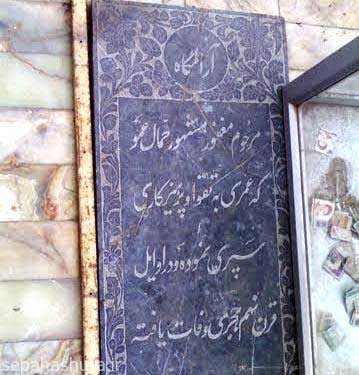 آرامگاه
مرحوم مغفور مشهور عمو
که عمری به تقوا و پرهیزکاری
سپری نموده و در اوایل
قرن نهم هجری وفات یافته